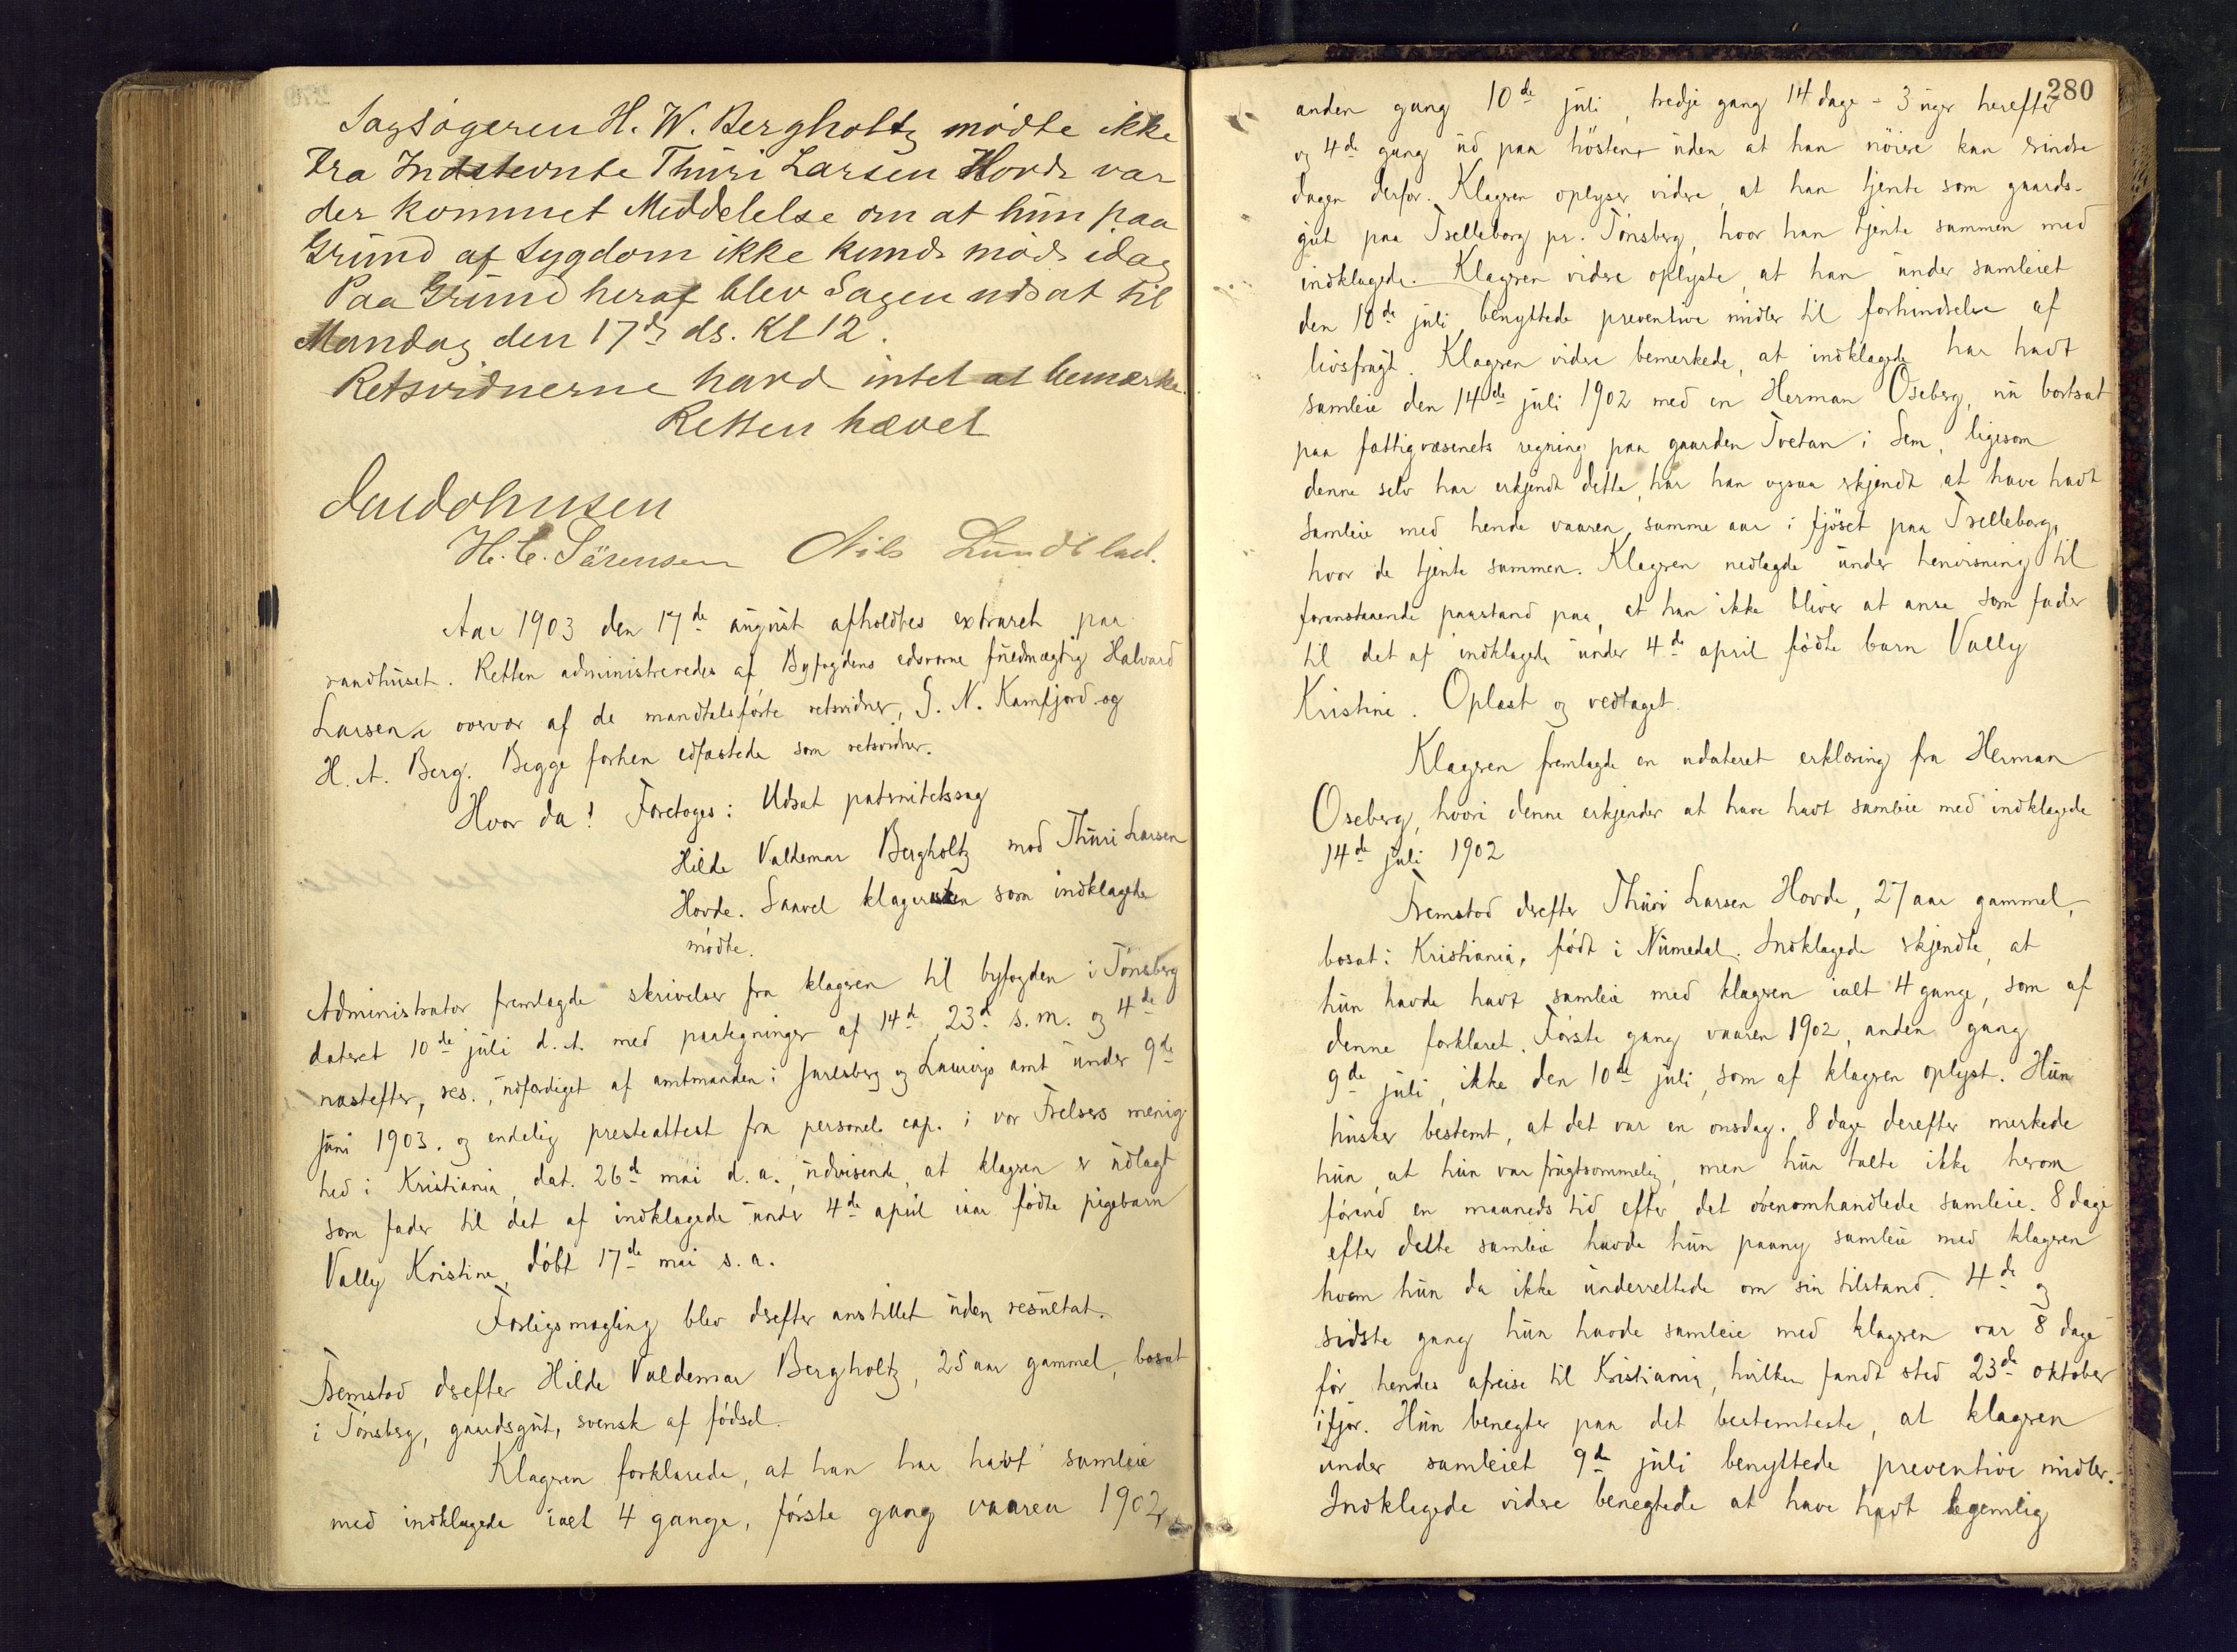 Sagsøgeren H. W. Bergholtz mødte ikke
Fra Indstevnte Thuri Larsen Hovde var
der kommet Meddelelse om at hun paa
Grund af Sygdom ikke kunde møde idag
Paa Grund heraf blev Sagen udsat til
Mandag den 17de ds. Kl 12.
Retsvidnerne havde intet at bemærke.
Retten hævet
H. C. Sørensen Nils Lundblad.
Aar 1903 den 17de august afholdtes extraret paa
raadhuset. Retten administreredes af Byfogdens edsvorne fuldmægtig Halvard
Larsen i overvær af de mandtalsførte retsvidner, G. N. Kamfjord og
H. A. Berg. Begge forhen edfæstede som retsvidner.
Hvor da! Foretoges: Udsat paternitetssag
Hilde Valdemar Bergholtz mod Thuri Larsen
Hovde. Saavel klageren som indklagede
mødte.
Administrator fremlagde skrivelser fra klageren til byfogden i Tønsberg
dateret 10de juli d. A. med paategninger af 14de, 23de s. m. og 4de
næstefter, res., udfærdiget af amtmanden i Jarlsberg og Laurvigs amt under 9de
juni 1903. og endelig presteattest fra personel cap. i vor Frelsers menig
hed i Kristiania, dat. 26de mai d. a., udvisende, at klageren er udlagt
som fader til det af indklagede under 4de april iaar fødte pigebarn
Vally Kristine, døbt 17de mai s. a.
Forligsmægling blev derefter anstillet uden resultat.
Fremstod derefter Hilde Valdemar Bergholtz, 25 aar gammel, bosat
i Tønsberg, gaardsgut, svensk af fødsel.
Klageren forklarede, at han har havt samleie
med indklagede ialt 4 gange, første gang vaaren 1902,
280
anden gang 10de juli, tredje gang 14 dage - 3 uger herefter
og 4de gang ud paa høsten, uden at han nøiere kan erindre
dagen derfor. Klageren oplyser videre, at han tjente som gaards-
gut paa Trelleborg pr. Tønsberg, hvor han tjente sammen med
indklagede. Klageren videre oplyste, at han under samleiet
den 10de juli benyttede preventive midler til forhindrelse af
livsfrugt. Klageren videre bemerkede, at indklagede har havt
samleie den 14de juli 1902 med en Herman Oseberg, nu bortsat
paa fattigvæsenets regning paa gaarden Tvetan i Sem, ligesom
denne selv har erkjendt dette, har han ogsaa erkjendt at have havt
samleie med hende vaaren samme aar i fjøset paa Trelleborg,
hvor de tjente sammen. Klageren nedlagde under henvisning til
foranstaaende paastand paa, at han ikke bliver at anse som fader
til det af indklagede under 4de april fødte barn Vally
Kristine. Oplæst og vedtaget.
Klageren fremlagde en udateret erklæring fra Herman
Oseberg, hvori denne erkjender at have havt samleie med indklagede
14de juli 1902
Fremstod derefter Thuri Larsen Hovde, 27 aar gammel,
bosat i Kristiania, født i Numedal. Indklagede erkjendte, at
hun havde havt samleie med klageren ialt 4 gange, som af
denne forklaret. Første gang vaaren 1902, anden gang
9de juli, ikke den 10de juli, som af klageren oplyst. Hun
husker bestemt, at det var en onsdag. 8 dage derefter merkede
hun, at hun var frugtsommelig, men hun talte ikke herom
førend en maaneds tid efter det ovenomhandlede samleie. 8 dage
efter dette samleie havde hun paany samleie med klageren
hvem hun da ikke underrettede om sin tilstand. 4de og
sidste gang hun havde samleie med klageren var 8 dage
før hendes afreise til Kristiania, hvilken fandt sted 23de oktober
ifjor. Hun benegter paa det bestemteste, at klageren
under samleiet 9de juli benyttede preventive midler.
Indklagede videre benegtede at have havt legemlig